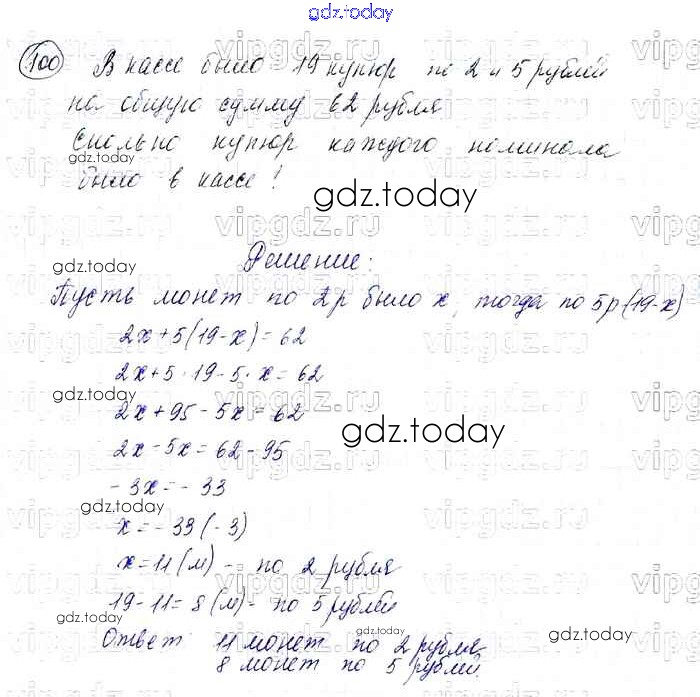 gdz.today
100 В кассе было 19 купюр по 2 и 5 рублей
на общую сумму 62 рубля
Сколько купюр каждого номинала
было в кассе!
gdz.today
gdz.today
Решение:
gdz.today
Пусть монет по 2р было х, тогда по 5р (19-х)
2х+5(19-х)=62
2х+5·19-5·х=62
gdz.today
2х+95-5х=62
gdz.today
2х-5х=62-95
-3х=-33
gdz.today
х=-33(-3)
х=11(м) - по 2 рубля
19-11=8(м)- по 5 рублей
gdz.today
Ответ 11 монет по 2 рубля
gdz.today
8 монет по 5 рублей.
vipgdz.ru